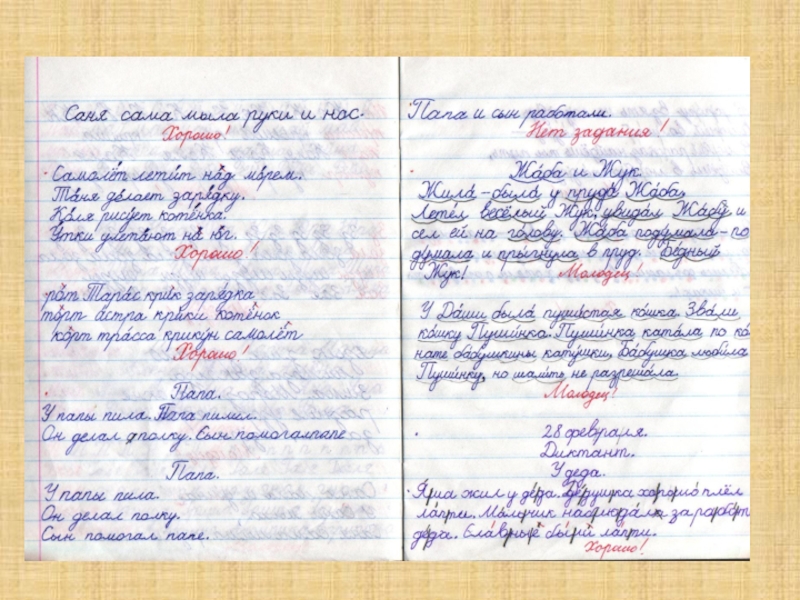 Саня сама мыла руки и нос.
Хорошо!
Самолёт летит над морем.
Таня делает зарядку.
Коля рисует котёнка.
Утки улетают на юг.
Хорошо!
рот Тарас крик зарядка
торт астра крики котёнок
корт трасса крикун самолёт
Хорошо!
Папа.
У папы пила. Папа пилил.
Он делал полку. Сын помогалпапе
Папа.
У папы пила.
Он делал полку.
Сын помогал папе.
Папа и сын работали.
Нет задания!
Жаба и Жук.
Жила-была у пруда Жаба.
Летел весёлый Жук, увидал Жабу и
сел ей на голову. Жаба подумала-по
думала и прыгнула в пруд. Бедный
Жук!
Молодец!
У Даши была пушистая кошка. Звали
кошку Пушинка. Пушинка катала по ко
нате бабушкины катушки. Бабушка любила
Пушинку, но шалить не разрешала.
Молодец!
28 февраля.
Диктант.
У деда.
Яша жил у деда. Дедушка хорошо плёл
лапти. Мальчик наблюдал за работ
деда. Славные были лапти.
Хорошо!